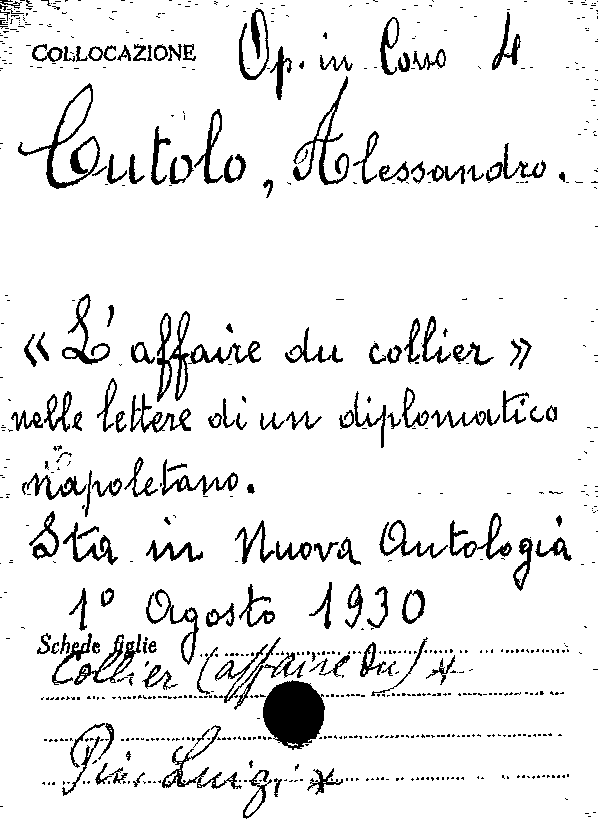 COLLOCAZIONE Op. in Corso 4
Cutolo, Alessandro.
« L'affaire du collier »
nelle lettere di un diplomatico
napoletano.
Sta in Nuova Antologia
1° Agosto 1930
Schede figlie
Collier (affaire du) *
Pio, Luigi *